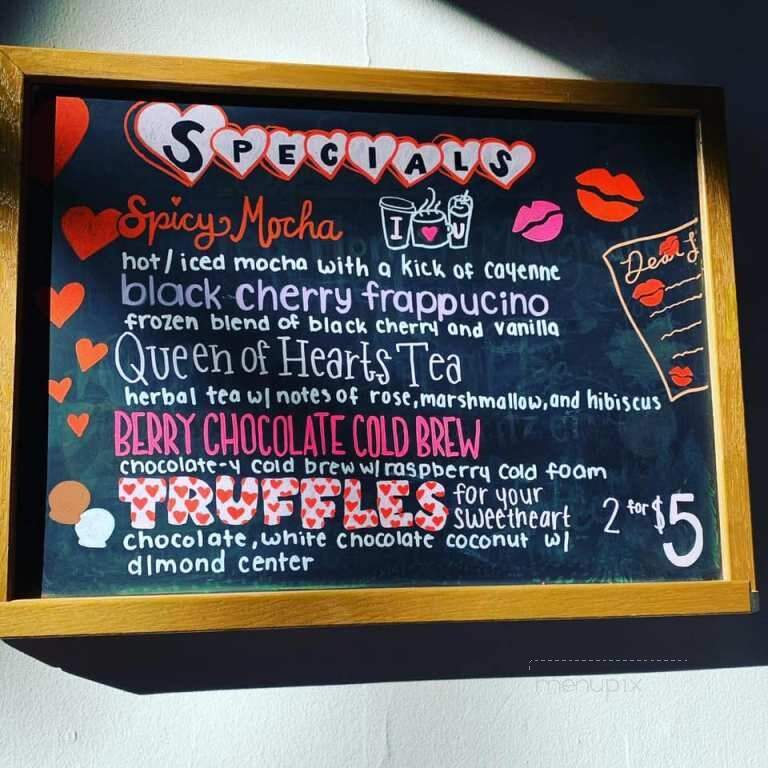 SPECIALS
Spicy Mocha
I U
hot/iced mocha with a kick of cayenne
black cherry frappucino
frozen blend of black cherry and vanilla
Queen of Hearts Tea
herbal tea w/ notes of rose, marshmallow, and hibiscus
BERRY CHOCOLATE COLD BREW
chocolate-y cold brew w/ raspberry cold foam
TRUFFLES for your sweetheart 2 for $5
chocolate, white chocolate coconut w/
almond center
Dear
menupix